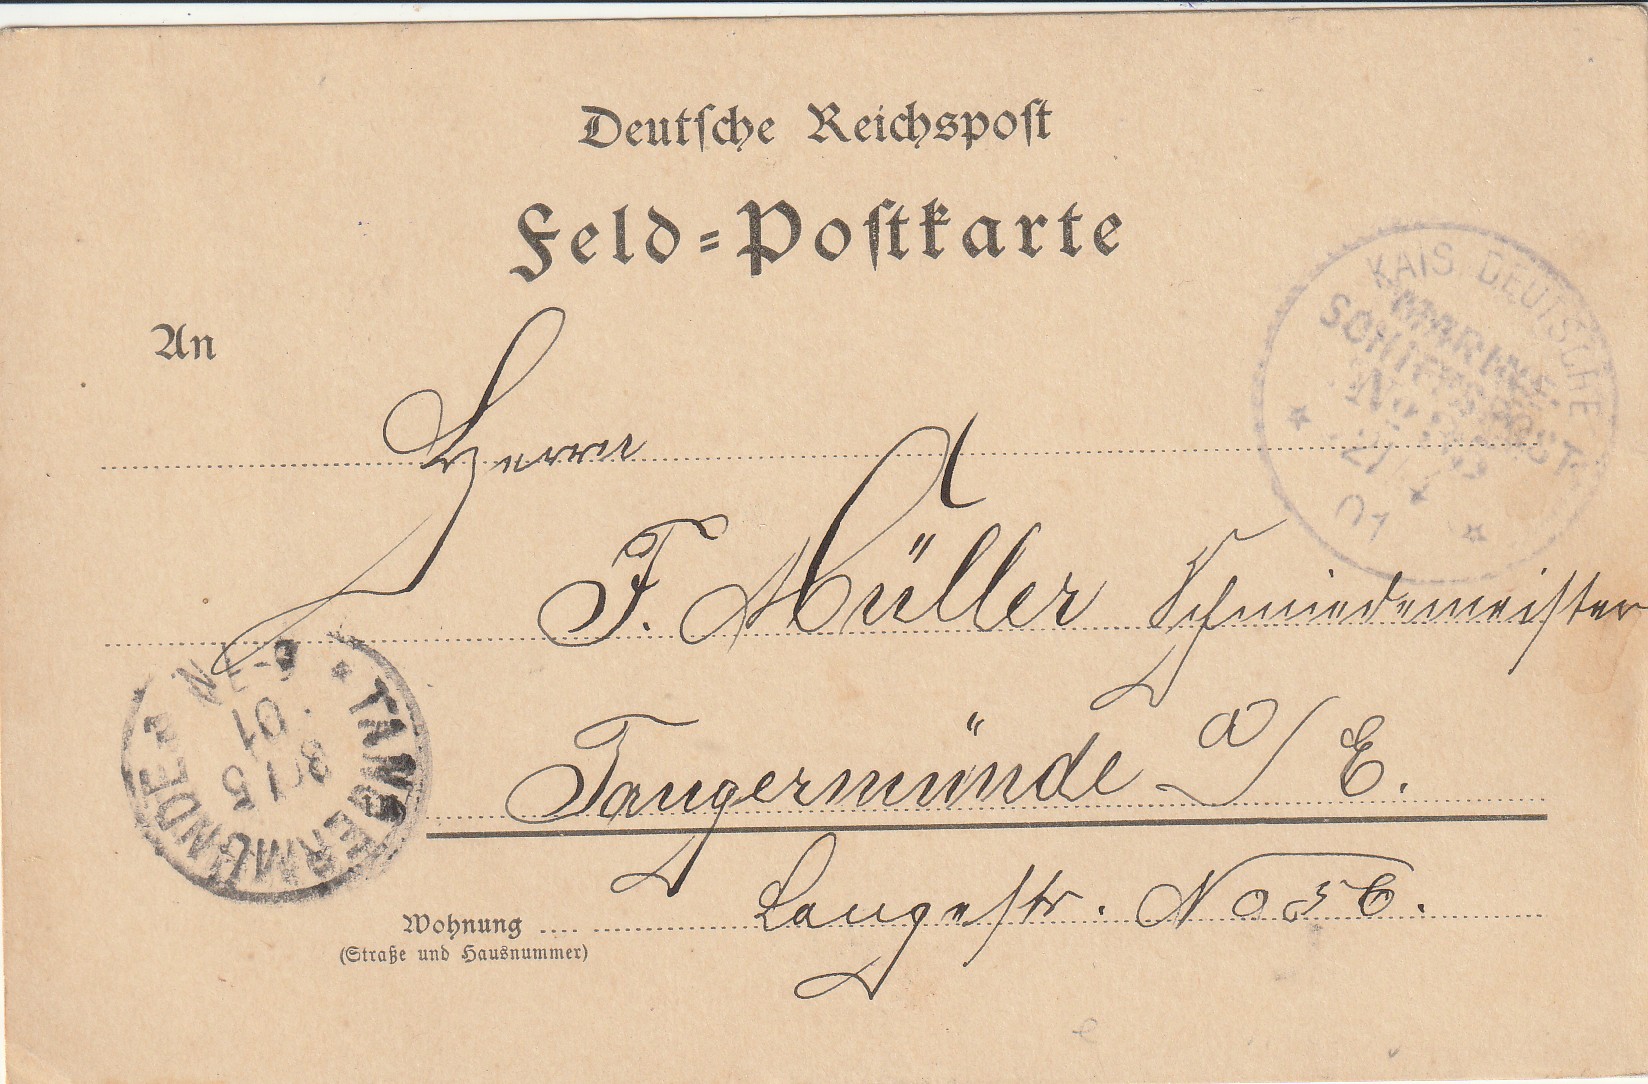 Deutsche Reichspost
Feld=Postkarte
An
Herrn
F. Müller Schmiedemeister
Tangermünde a/E.
Wohnung
(Straße und Hausnummer)
Langestr. No
KAIS. DEUTSCHE
MARINE-
SCHIFFSPOST
No
01
TANGERMÜNDE
5
01